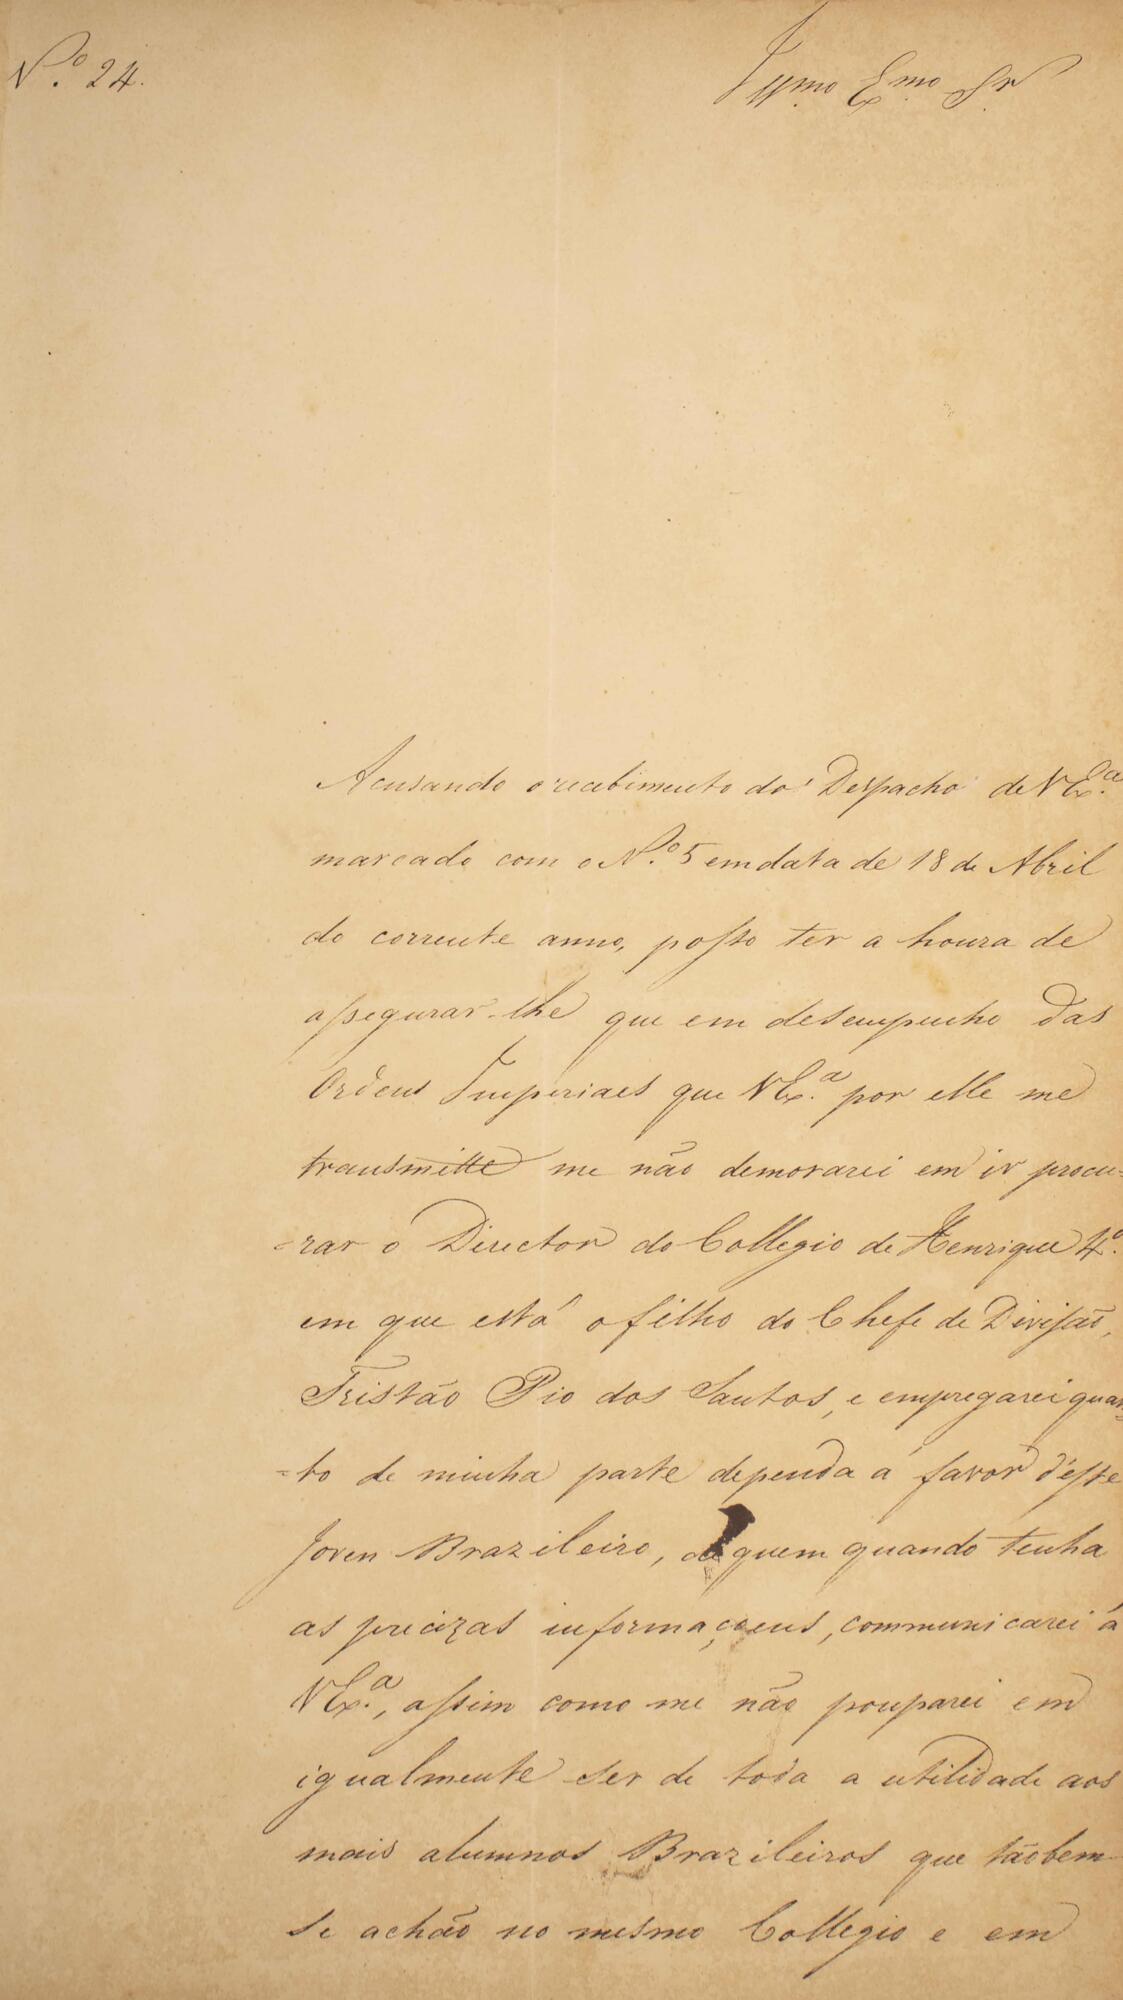 N.º 24.
Illmo Exmo Sr
Acusando o recebimento do Despacho de V Ex.ª
marcado com o N.º 5 em data de 18 de Abril
do corrente anno, posso ter a honra de
assegurar-lhe que em desempenho das
Ordens Imperiaes que V Ex.ª por elle me
transmitte me não demorarei em ir procu-
-rar o Director do Collegio de Henrique 4º.
em que está o filho do Chefe de Divisão,
Tristão Pio dos Santos, e empregarei quan-
-to de minha parte dependa a favor d'este
Joven Brazileiro, de quem quando tenha
as precizas informaçoens, communicarei á
V Ex.ª, assim como me não pouparei em
igualmente ser de toda a utilidade aos
mais alumnos Brazileiros que tãobem
se achão no mesmo Collegio e em